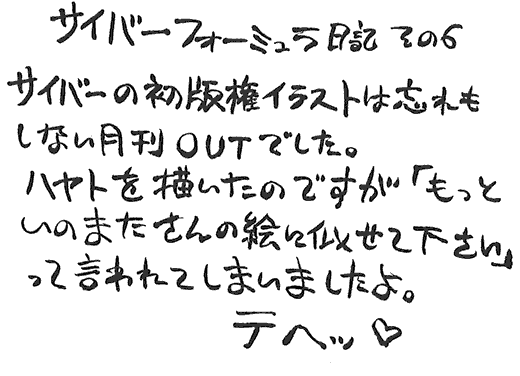 サイバーフォーミュラ日記 その6
サイバーの初版権イラストは忘れも
しない月刊OUTでした。
ハヤトを描いたのですが「もっと
いのまたさんの絵に似せて下さい」
って言われてしまいましたよ。
テヘッ♡